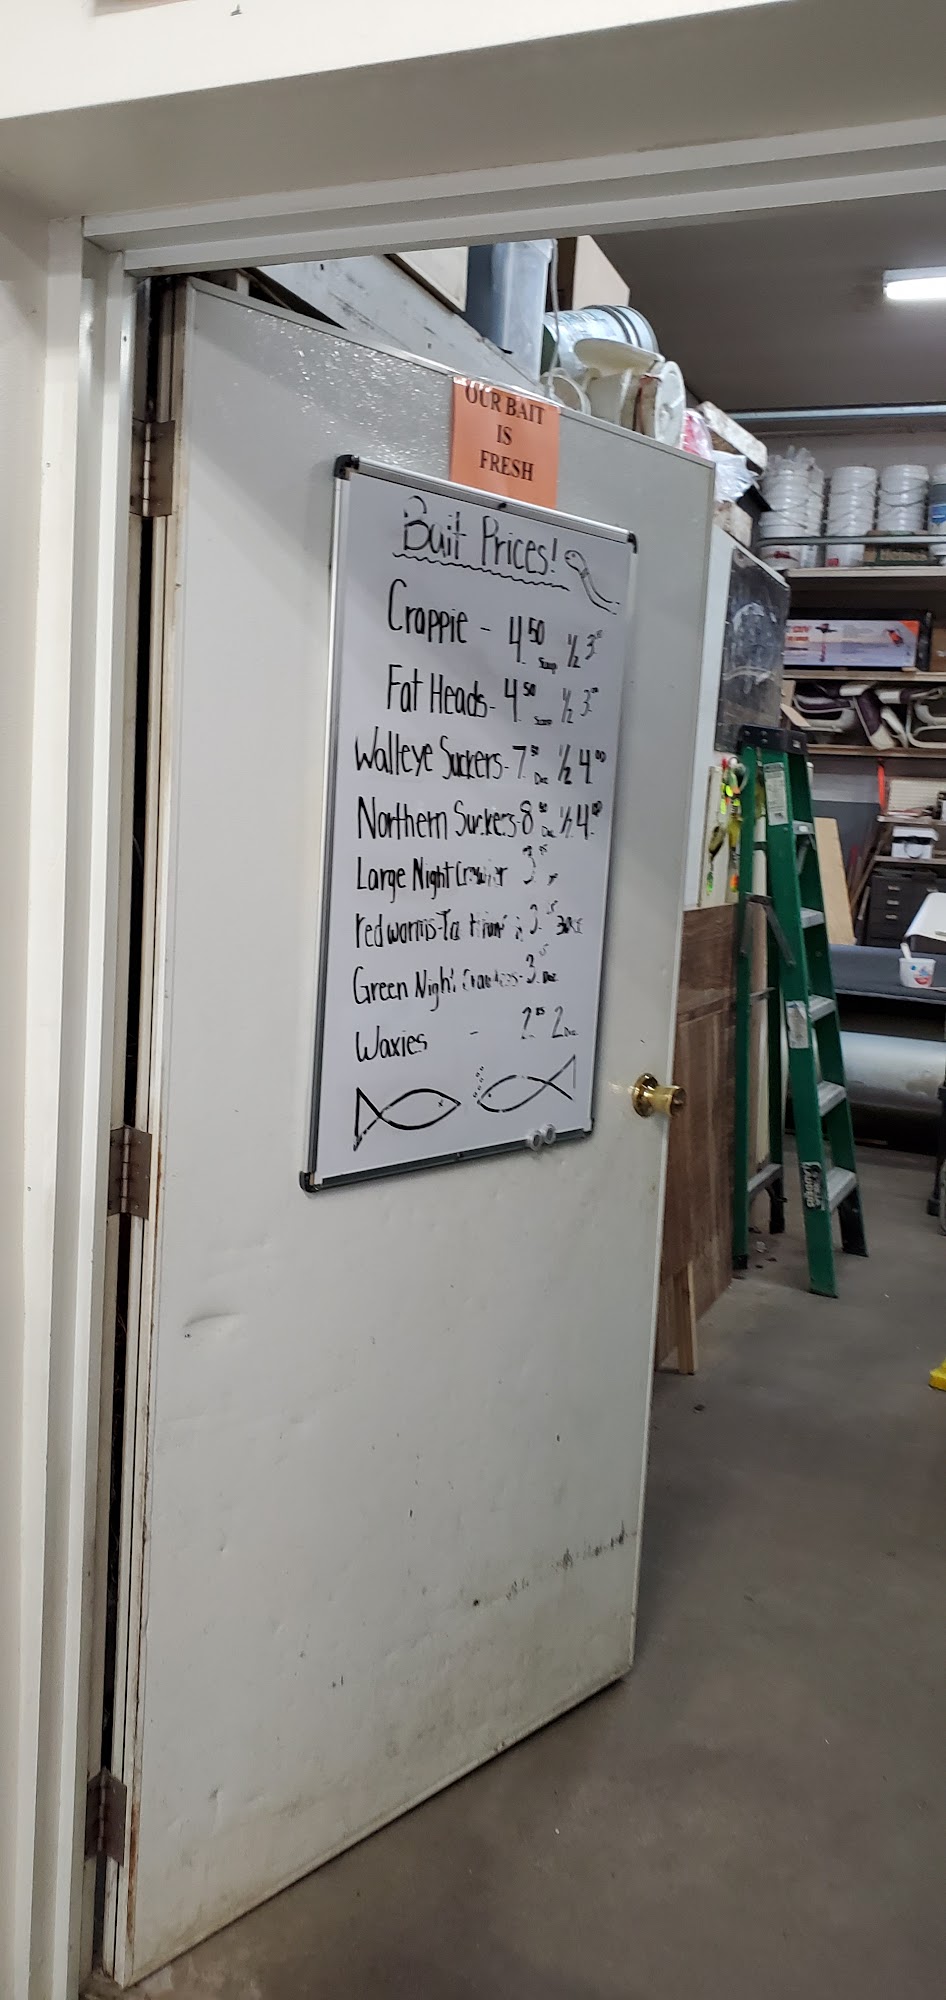 OUR BAIT
IS
FRESH
Bait Prices!
Crappie - 4.50 Scoop 1/2 3.
Fat Heads - 4.50 Scoop 1/2 3.
Walleye Suckers - 7.50 Doz 1/2 4.00
Northern Suckers - 8.50 Doz 1/2 4.00
Large Night Crawler 3.
redworms - 3.
Green Night Crawlers - 3. Doz
Waxies - 2. 2 Doz